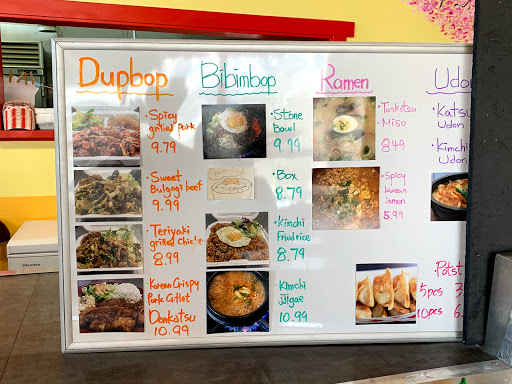 Dupbop
· Spicy
grilled pork
9.79
· Sweet
Bulgogi beef
9.99
· Teriyaki
8.99
· Korean Crispy
Pork Cutlet
Donkatsu
10.99
Bibimbop
· Stone
bowl
9.99
· Box
8.79
· Kimchi
Fried rice
8.79
· Kimchi
jjigae
10.99
Ramen
Miso
8.49
· Spicy
Korean
ramen
5.99
Udon
· Katsu
Udon
· Kimchi
Udon
5pcs
10pcs